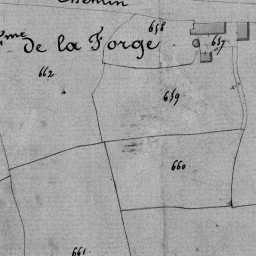 Chemin
658
657
me de la Forge
662
659
660
661